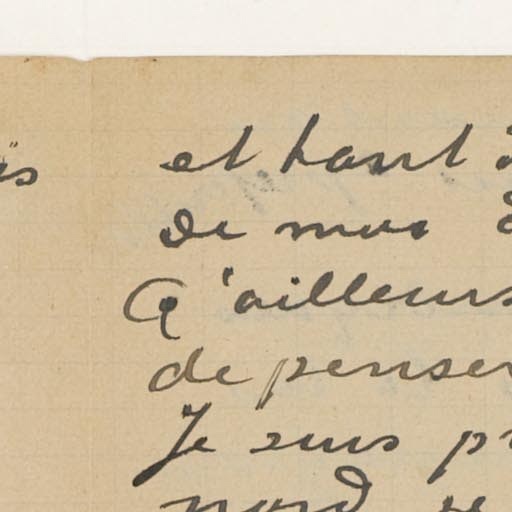 et tant
de mes
d'ailleurs
de penser
Je suis
nord